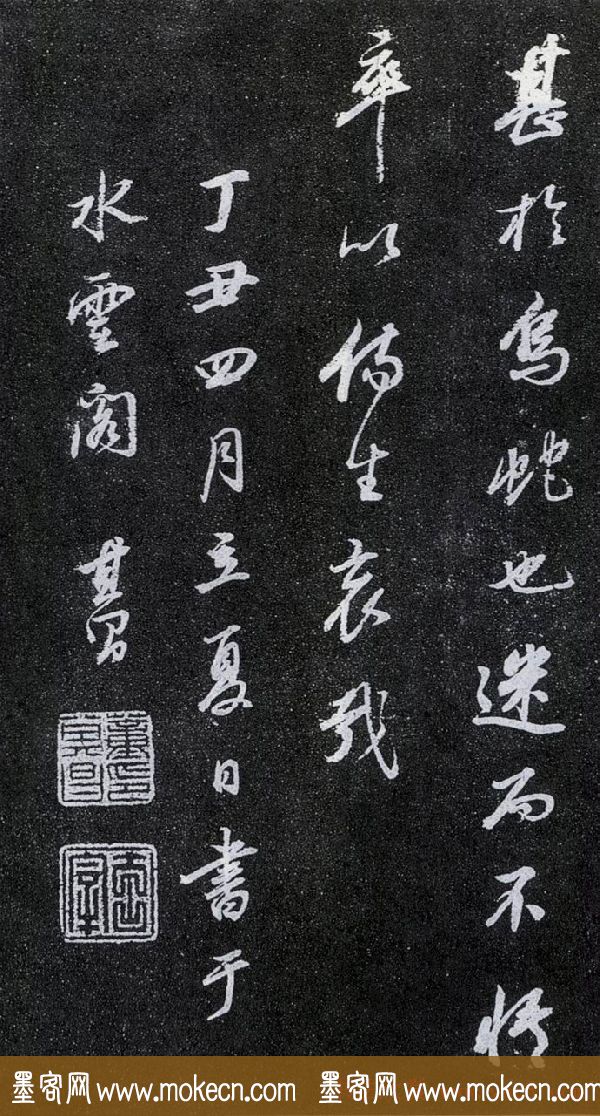 甚於蛇也迷而不悟
率以傷生哀哉
丁丑四月立夏日書于
水雲閣 其昌
董其昌印
墨客网 www.mokecn.com 墨客网 www.mokecn.com